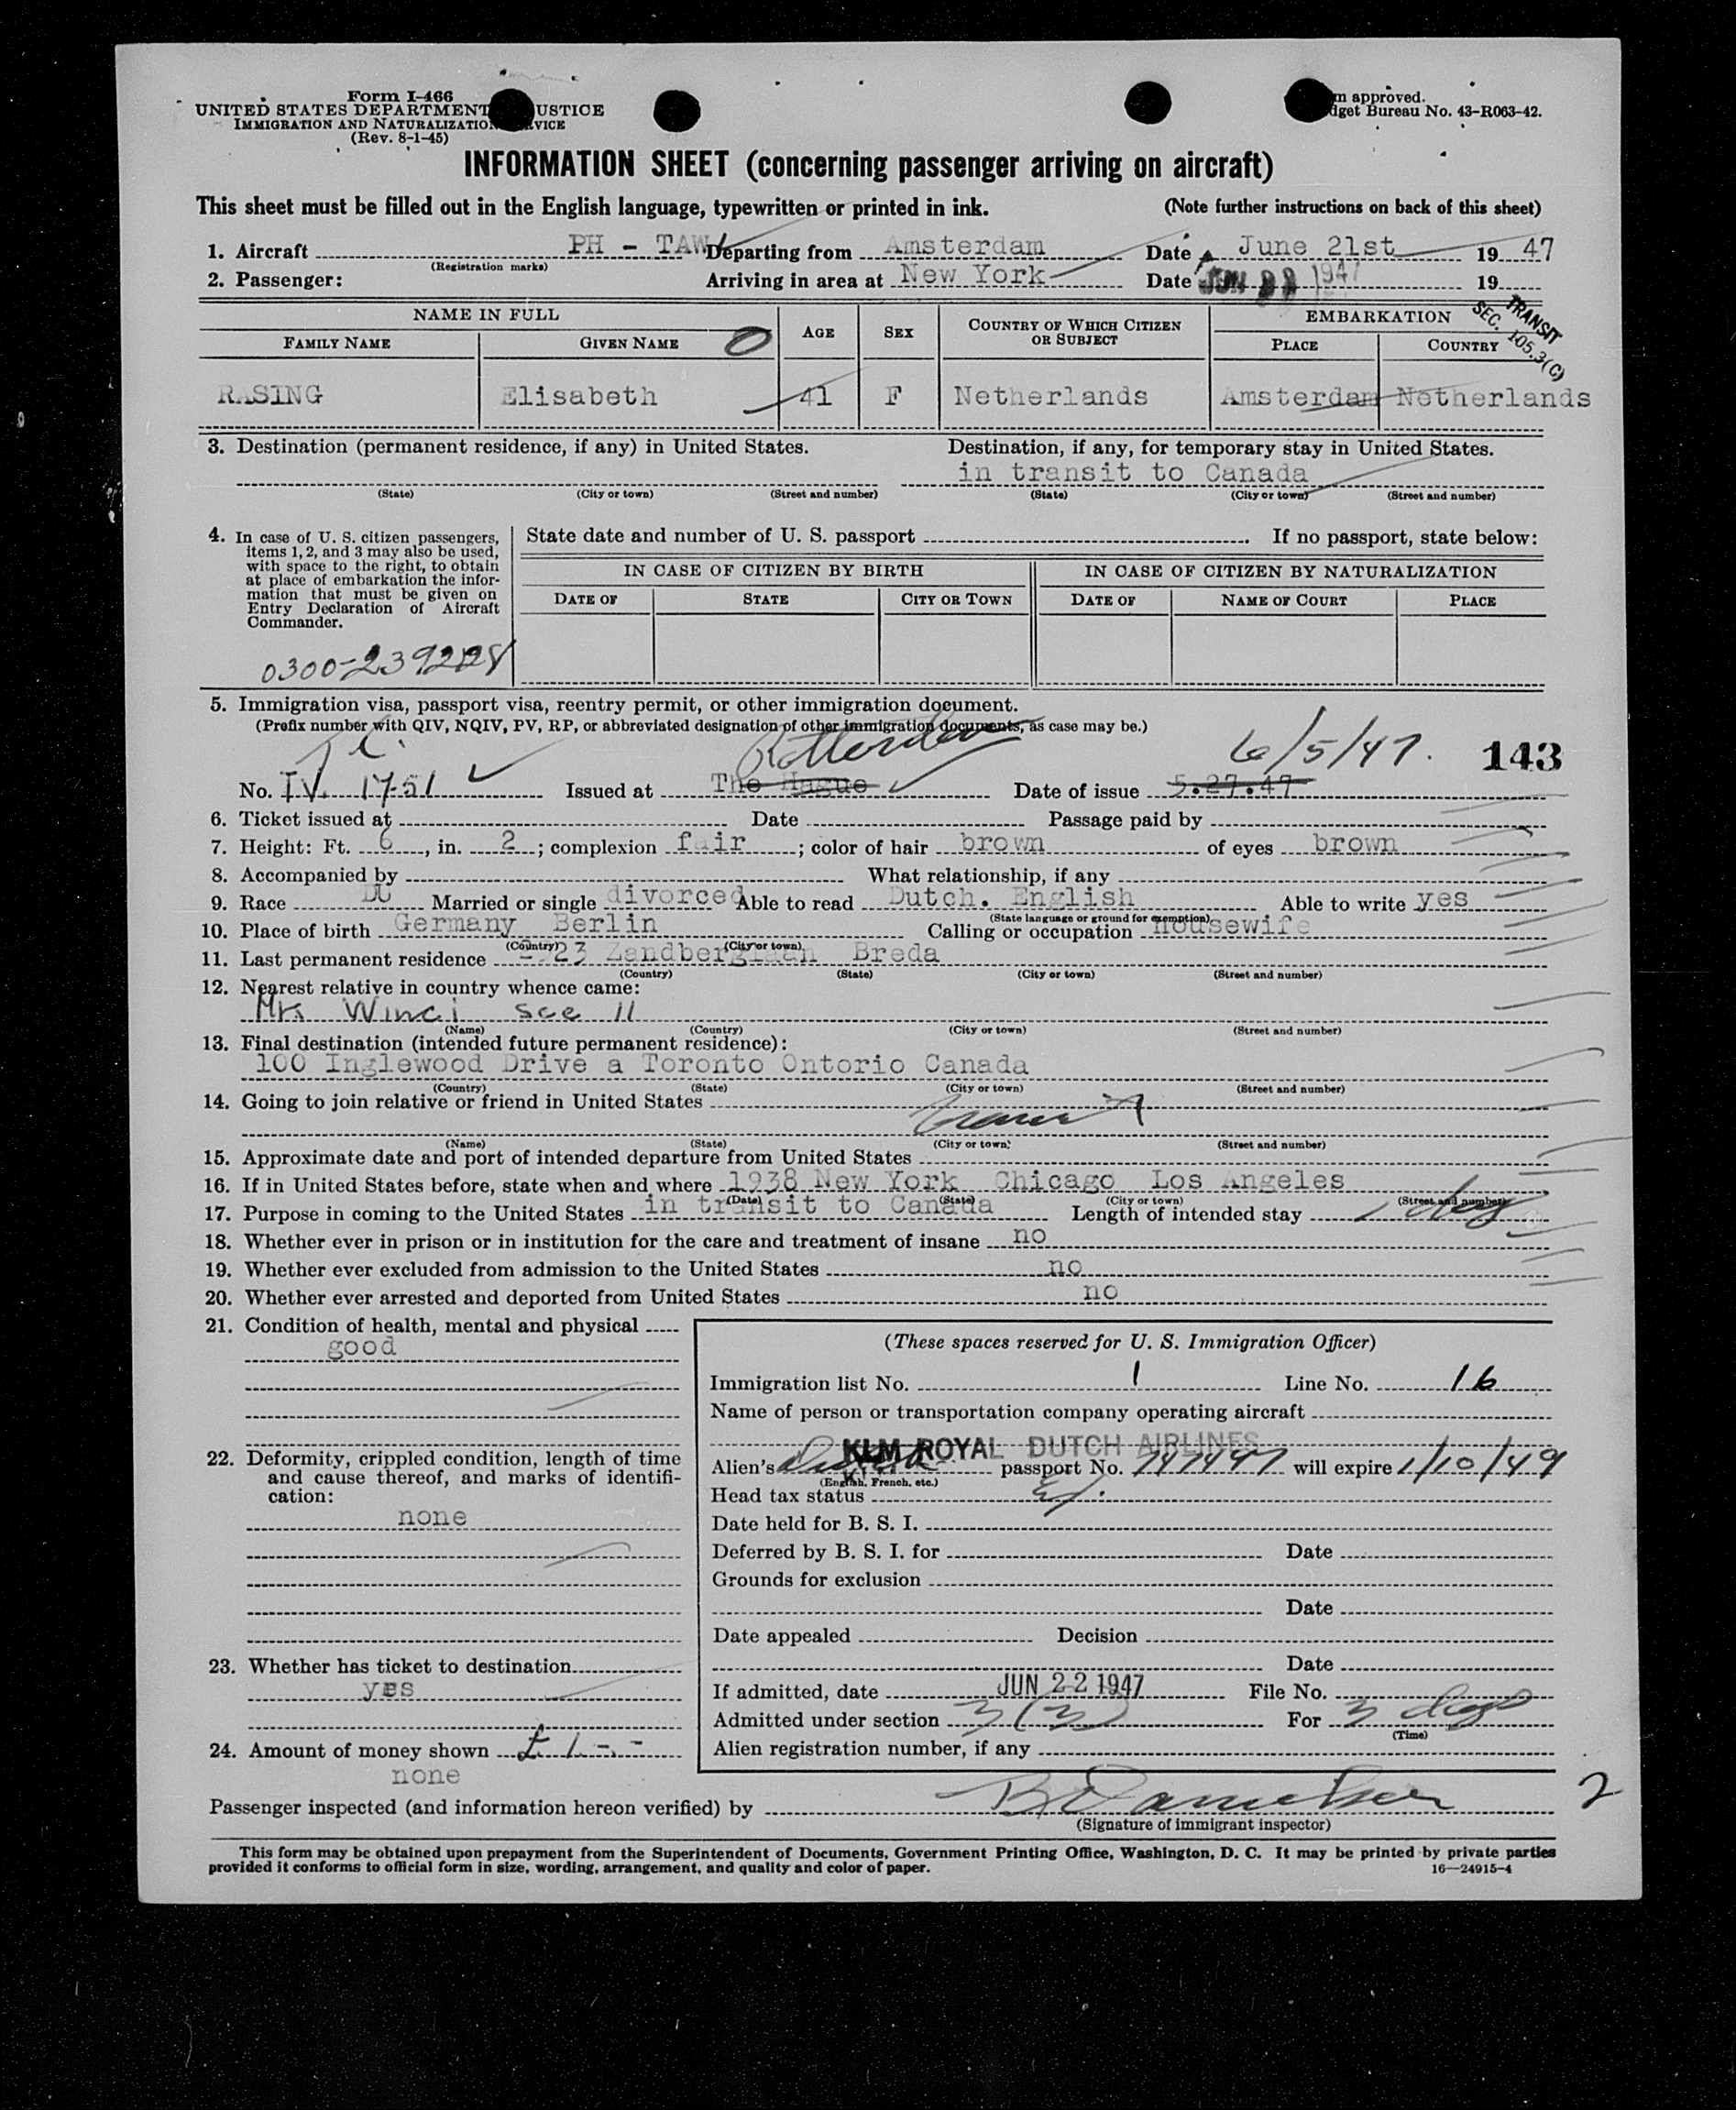 Form I-466
UNITED STATES DEPARTMENT USTICE
IMMIGRATION AND NATURALIZATION VICE
(Rev. 8-1-45)
m approved.
dget Bureau No. 43-R063-42.
INFORMATION SHEET (concerning passenger arriving on aircraft)
This sheet must be filled out in the English language, typewritten or printed in ink. (Note further instructions on back of this sheet)
1. Aircraft PH - TAW Departing from Amsterdam Date June 21st 1947
(Registration marks)
2. Passenger: Arriving in area at New York Date JUN 22 1947 19
TRANSIT
SEC. 105.3(C)
NAME IN FULL AGE SEX COUNTRY OF WHICH CITIZEN OR SUBJECT EMBARKATION
FAMILY NAME GIVEN NAME PLACE COUNTRY
RASING Elisabeth 41 F Netherlands Amsterdam Netherlands
3. Destination (permanent residence, if any) in United States. Destination, if any, for temporary stay in United States.
in transit to Canada
(State) (City or town) (Street and number) (State) (City or town) (Street and number)
4. In case of U. S. citizen passengers, items 1, 2, and 3 may also be used, with space to the right, to obtain at place of embarkation the information that must be given on Entry Declaration of Aircraft Commander.
State date and number of U. S. passport If no passport, state below:
IN CASE OF CITIZEN BY BIRTH IN CASE OF CITIZEN BY NATURALIZATION
DATE OF STATE CITY OR TOWN DATE OF NAME OF COURT PLACE
5. Immigration visa, passport visa, reentry permit, or other immigration document.
(Prefix number with QIV, NQIV, PV, RP, or abbreviated designation of other immigration documents, as case may be.)
Rotterdam 6/5/47. 143
No. IV. 1751 Issued at The Hague Date of issue 5.27.47
6. Ticket issued at Date Passage paid by
7. Height: Ft. 6, in. 2; complexion fair; color of hair brown of eyes brown
8. Accompanied by What relationship, if any
9. Race DU Married or single divorced Able to read Dutch. English Able to write yes
(State language or ground for exemption)
10. Place of birth Germany Berlin Calling or occupation housewife
(Country) (City or town)
11. Last permanent residence 23 Zandberglaan Breda
(Country) (State) (City or town) (Street and number)
12. Nearest relative in country whence came:
Winci see 11
(Name) (Country) (City or town) (Street and number)
13. Final destination (intended future permanent residence):
100 Inglewood Drive a Toronto Ontorio Canada
(Country) (State) (City or town) (Street and number)
14. Going to join relative or friend in United States
(Name) (State) (City or town) (Street and number)
15. Approximate date and port of intended departure from United States
16. If in United States before, state when and where 1938 New York Chicago Los Angeles
(Date) (State) (City or town) (Street and number)
17. Purpose in coming to the United States in transit to Canada Length of intended stay 1 day
18. Whether ever in prison or in institution for the care and treatment of insane no
19. Whether ever excluded from admission to the United States no
20. Whether ever arrested and deported from United States no
21. Condition of health, mental and physical
good
22. Deformity, crippled condition, length of time and cause thereof, and marks of identification:
none
23. Whether has ticket to destination
yes
24. Amount of money shown £ 1.-.-
none
(These spaces reserved for U. S. Immigration Officer)
Immigration list No. 1 Line No. 16
Name of person or transportation company operating aircraft
KLM ROYAL DUTCH AIRLINES
Alien's Dutch passport No. 747497 will expire 1/10/49
(English, French, etc.)
Head tax status
Date held for B. S. I.
Deferred by B. S. I. for Date
Grounds for exclusion
Date
Date appealed Decision
Date
If admitted, date JUN 22 1947 File No.
Admitted under section 3(3) For 3 days
(Time)
Alien registration number, if any
2
Passenger inspected (and information hereon verified) by
(Signature of immigrant inspector)
This form may be obtained upon prepayment from the Superintendent of Documents, Government Printing Office, Washington, D. C. It may be printed by private parties
provided it conforms to official form in size, wording, arrangement, and quality and color of paper. 16—24915-4